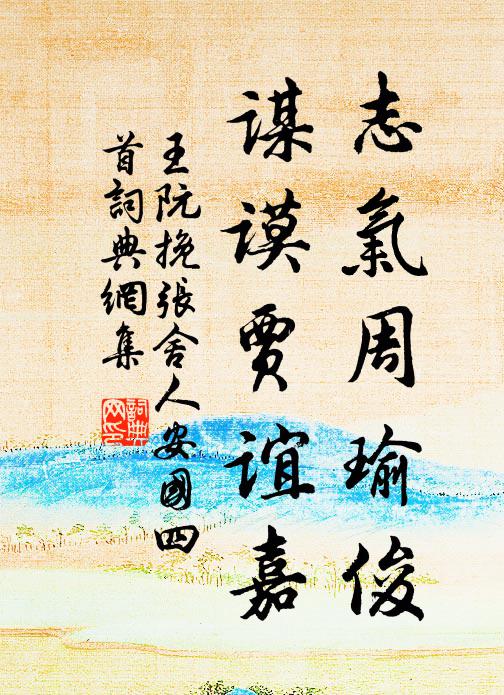 志氣周瑜俊
謀謨賈誼嘉
王阮挽張舍人安國四
首詞典網集
詞典
网印